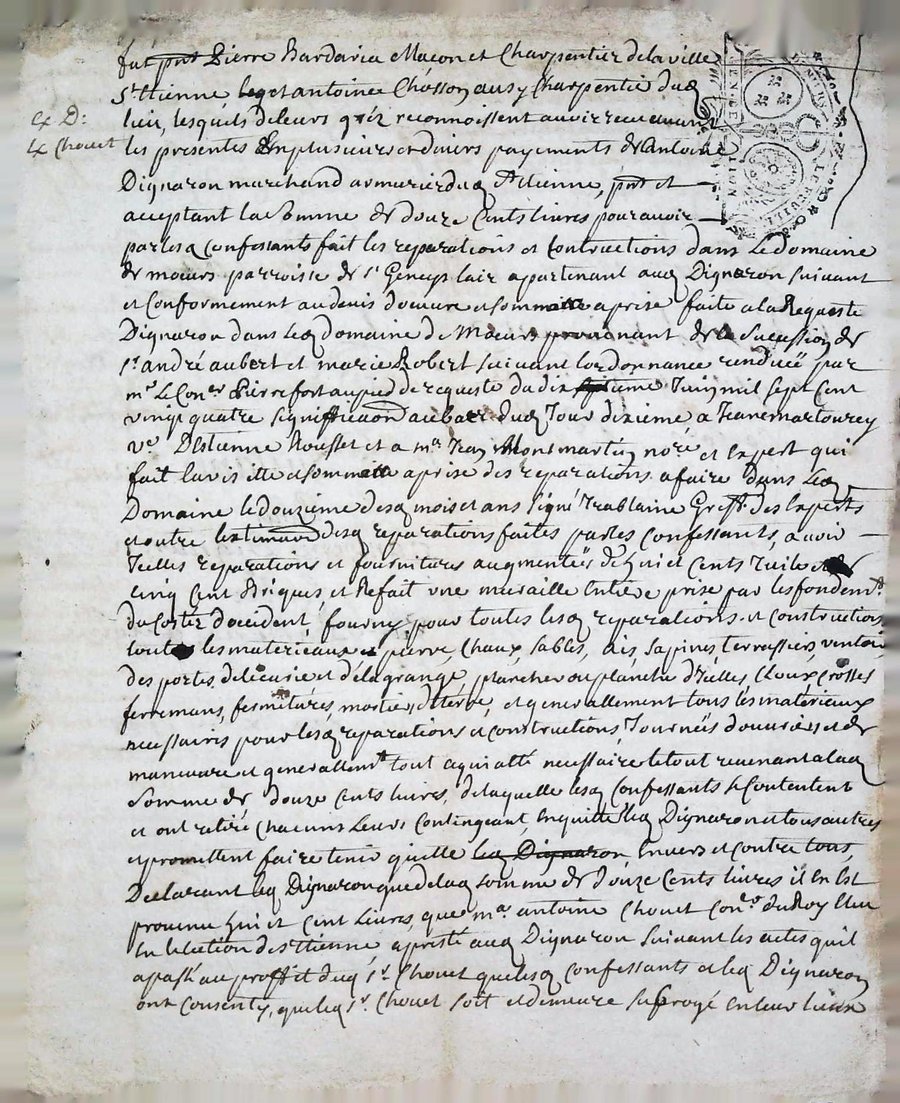 fut pnt Pierre Bardarica Maçon et Charpentier de la ville
St Etienne et antoine Chosson aussy Charpentie dud
lieu, lesquels de leurs gréz reconnoissent avoir receu avant
ex D:
Le Chouet
les presentes En plusieurs et divers payements de Antoine
Dignaron marchand armurier dud St Etienne, pnt et
acceptant la somme de douze Cents livres pour avoir
par lesd Confessants fait les reparations et Contructions dans Le domaine
de mœurs parroisse de St Geneys lair apartenant aud Dignaron suivant
et Conformement au devis d'œuvre et sommaire aprise faite a la Requeste
Dignaron dans Led domaine de Mœurs provenant de la Sucession de
sr andré aubert et marie Robert suivant lordonnance renduë par
mr Le Coner Pierrefort au pied de requeste du dix Juin mil sept Cent
vingt quatre signiffication au bas dud Jour dixieme, a Jeanne martourey
ve D'Estienne Rousset et a me Jean Montmartin nore et Expert qui
fait la visitte et sommaire aprise des reparations a faire dans Led
Domaine le douzieme desd mois et ans signé Trablaine Greffr des Experts
et outre lestimaon desd reparations faites par les Confessants, avoir
Icelles reparations et fournitures augmenteé de huict Cents Tuiles
Cinq Cent Briques, et Refait une muraille Entiere prise par les fondemts
du Costé d'occident, fourny pour toutes lesd reparations et Constructions
toutes les materieaux pierre, Chaux, sables, ais, sapines, terrassier, ventoir
des portes de l'écurie et de la grange, plancher ou planche d'icelles, Cloux, Crosses
ferremans, fermitures, mortier, et terre, et generallement tous les matériaux
necessaires pour lesd reparations et constructions, Journeés d'ouvriers et de
maneuvre et generallemt tout aquiatté necessaire le tout revenant a lad
Somme de douze Cents livres, de laquelle lesd Confessants se Contentent
et ont retiré Chacuns Leurs Contingeant, En quitte led Dignaron et tous autres
et promettent faire tenir quitte led Dignaron, Envers et Contre tous,
Declarant led Dignaron que de lad somme de douze Cents livres il En Est
provenu huit Cent Livres, que me antoine Chouet Coner du Roy Eleu
En lelection de St Etienne a presté aud Dignaron suivant les actes quil
a passé au proffit dud sr Chouet que lesd Confessants et led Dignaron
ont Consenty, que led sr Chouet soit et demeure subrogé En leur lieux